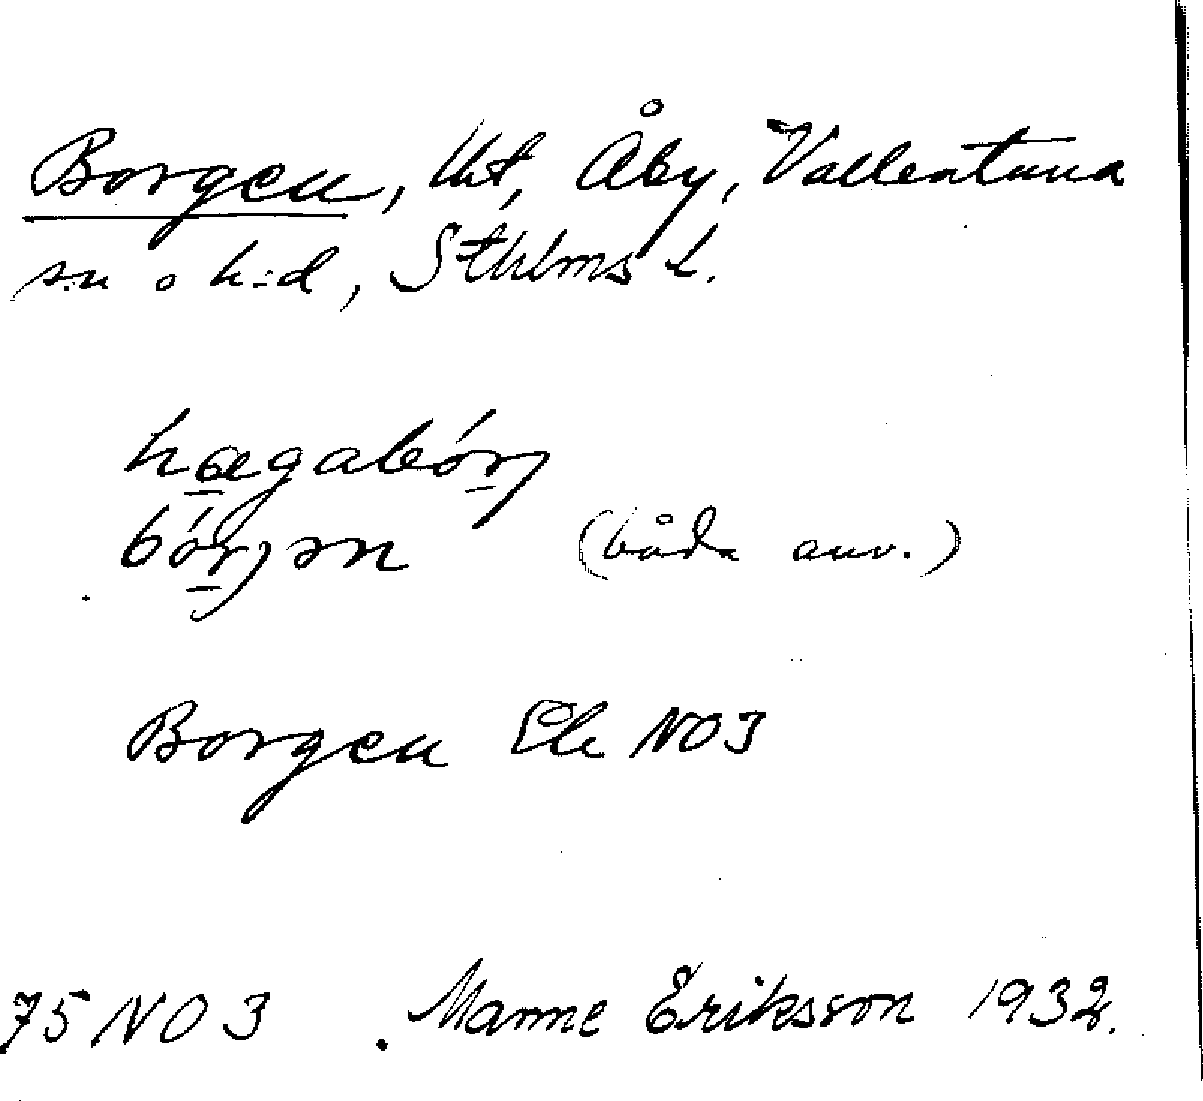 Borgen, lht, Åby, Vallentuna
sn o h:d, Sthlms l.
hægabórj
bórjən (båda anv.)
Borgen Ek NO3
75 NO 3 Manne Eriksson 1932.